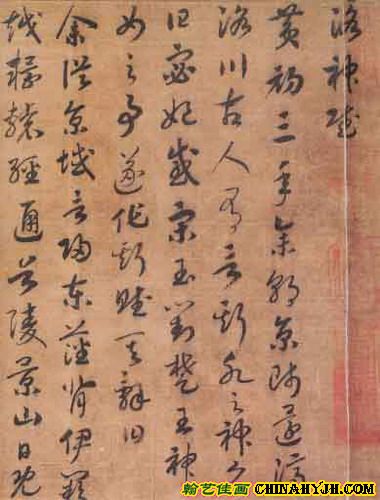 洛神賦
黄初三年余朝京師還濟
洛川古人有言斯水之神名
曰宓妃感宋玉對楚王神
女之事遂作斯賦其辭曰
余從京域言歸東藩背伊闕
越轘轅經通谷陵景山日既
翰艺佳画 CHINAHYJH.COM